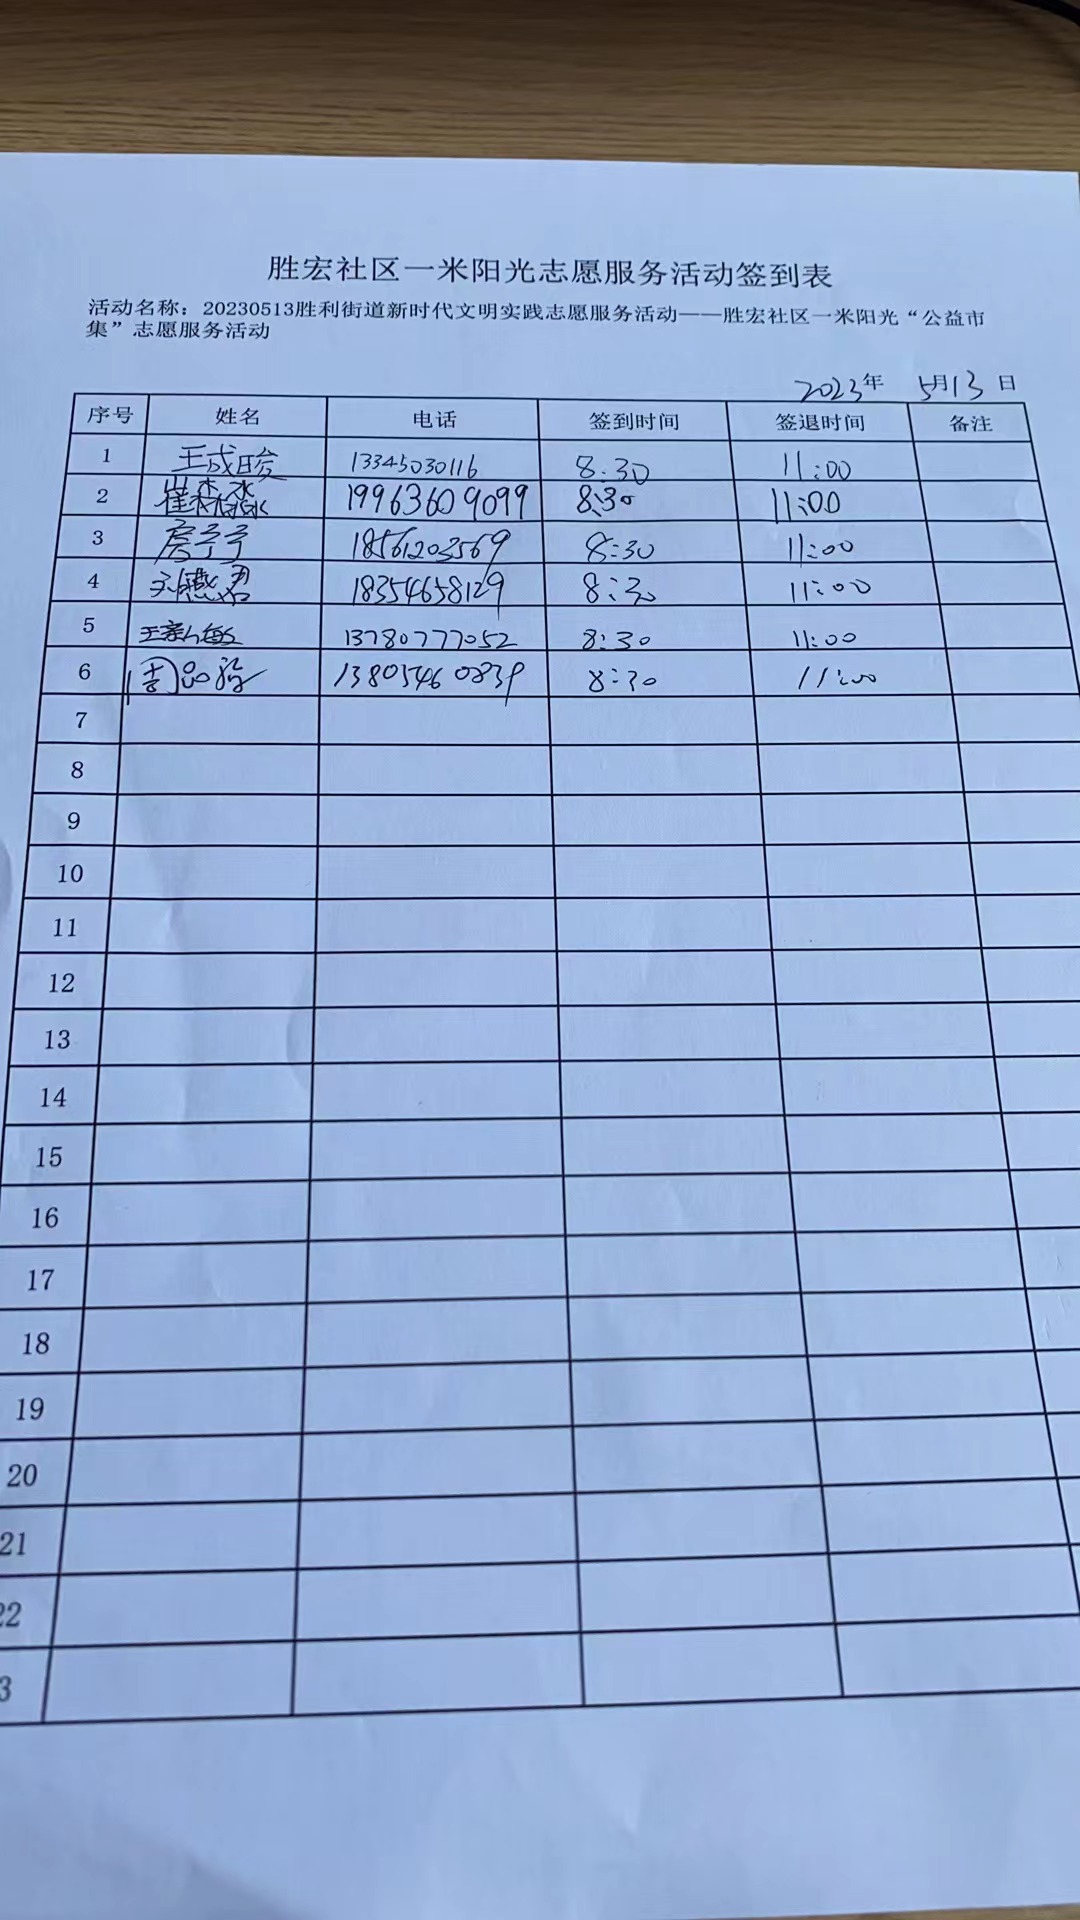 胜宏社区一米阳光志愿服务活动签到表
活动名称：20230513胜利街道新时代文明实践志愿服务活动——胜宏社区一米阳光“公益市
集”志愿服务活动
2023年 5月13日
序号 姓名 电话 签到时间 签退时间 备注
1 王成晙 13345030116 8:30 11:00
2 崔森淼 19963609099 8:30 11:00
3 房亭亭 18561203569 8:30 11:00
4 18354658129 8:30 11:00
5 13780777052 8:30 11:00
6 周 13805460839 8:30 11:00
7
8
9
10
11
12
13
14
15
16
17
18
19
20
21
22
3